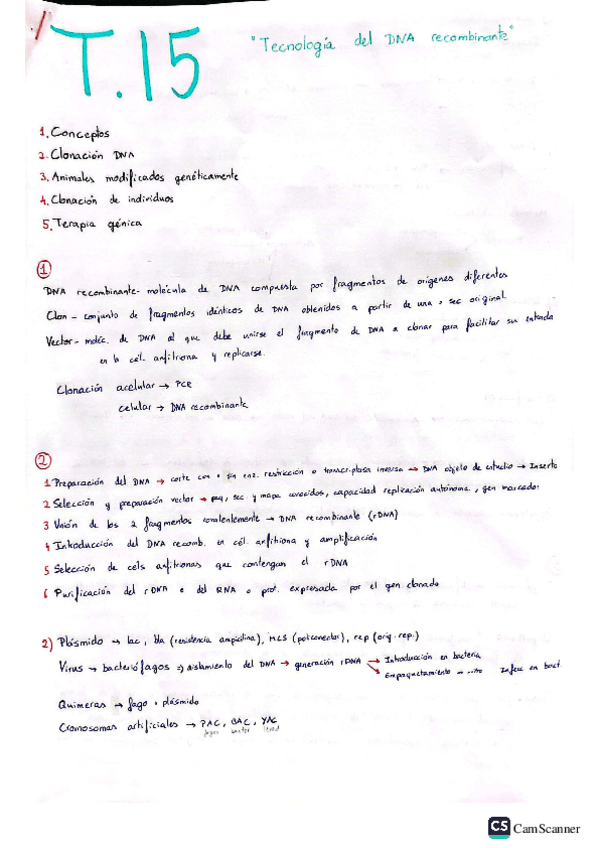 T.15
"Tecnología del DNA recombinante"
1. Conceptos
2. Clonación DNA
3. Animales modificados genéticamente
4. Clonación de individuos
5. Terapia génica
①
DNA recombinante - molécula de DNA compuesta por fragmentos de orígenes diferentes
Clon - conjunto de fragmentos idénticos de DNA obtenidos a partir de una sec original
Vector - moléc. de DNA al que debe unirse el fragmento de DNA a clonar para facilitar su entrada
en la cél. anfitriona y replicarse.
Clonación acelular → PCR
celular → DNA recombinante
②
1 Preparación del DNA → corte con o sin enz. restricción o transcriptasa inversa → DNA objeto de estudio → Inserto
2 Selección y preparación vector → peq, sec y mapa conocidos, capacidad replicación autónoma, gen marcador
3 Unión de los 2 fragmentos covalentemente → DNA recombinante (rDNA)
4 Introducción del DNA recomb. en cél. anfitriona y amplificación
5 Selección de cels anfitrionas que contengan el rDNA
6 Purificación del rDNA o del RNA o prot. expresada por el gen clonado
2) Plásmido → lac, bla (resistencia ampicilina), MCS (policonector), rep (orig. rep.)
Virus → bacteriófagos ⇒ aislamiento del DNA → generación rDNA → Introducción en bacteria
→ Empaquetamiento in vitro Infecc en bact.
Quimeras → fago + plásmido
Cromosomas artificiales → PAC, BAC, YAC